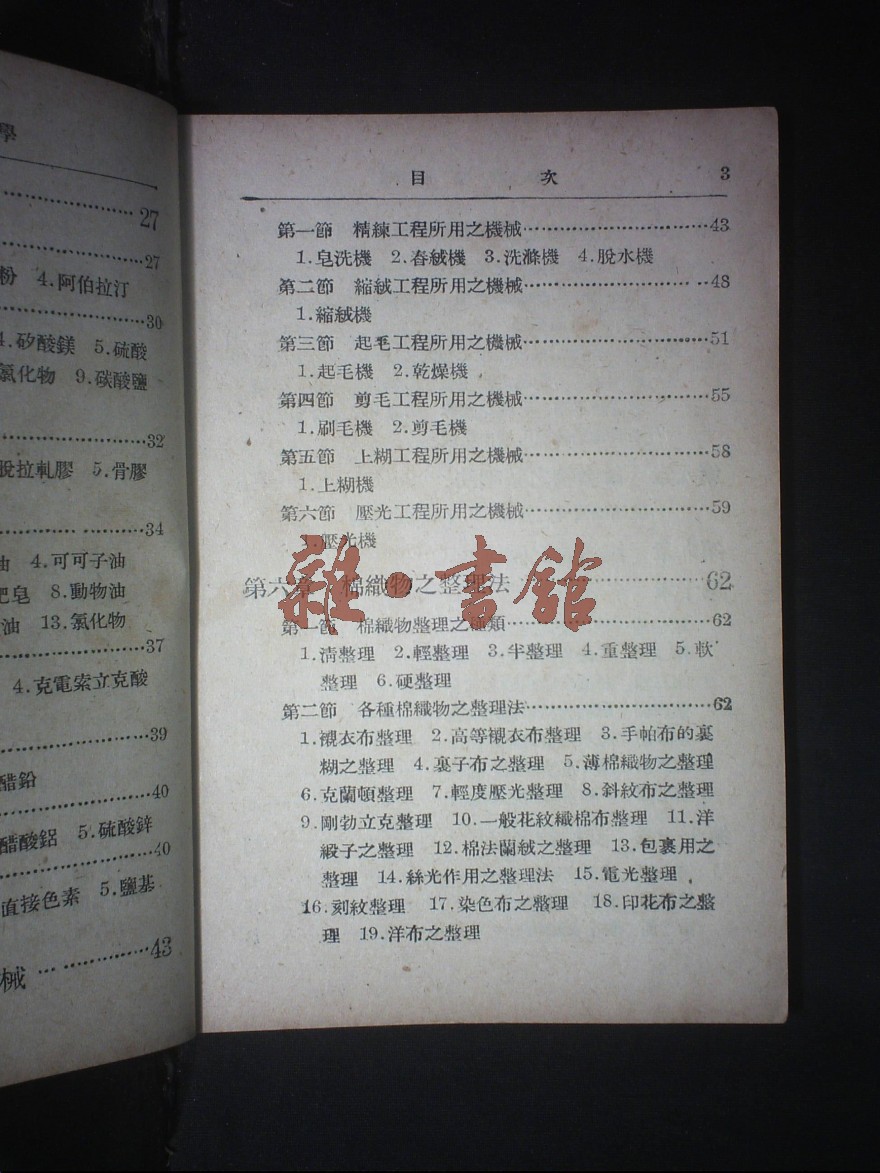 學
27
27
粉 4.阿伯拉汀
30
4.矽酸鎂 5.硫酸
氯化物 9.碳酸鹽
32
脫拉軋膠 5.骨膠
34
油 4.可可子油
肥皂 8.動物油
油 13.氯化物
37
4.克電索立克酸
39
醋鉛
40
醋酸鋁 5.硫酸鋅
40
直接色素 5.鹽基
械 43
目 次 3
第一節 精練工程所用之機械 43
1.皂洗機 2.舂絨機 3.洗滌機 4.脫水機
第二節 縮絨工程所用之機械 48
1.縮絨機
第三節 起毛工程所用之機械 51
1.起毛機 2.乾燥機
第四節 剪毛工程所用之機械 55
1.刷毛機 2.剪毛機
第五節 上糊工程所用之機械 58
1.上糊機
第六節 壓光工程所用之機械 59
1.壓光機
第六章 棉織物之整理法 62
第一節 棉織物整理之種類 62
1.清整理 2.輕整理 3.半整理 4.重整理 5.軟
整理 6.硬整理
第二節 各種棉織物之整理法 62
1.襯衣布整理 2.高等襯衣布整理 3.手帕布的裏
糊之整理 4.裏子布之整理 5.薄棉織物之整理
6.克蘭頓整理 7.輕度壓光整理 8.斜紋布之整理
9.剛勃立克整理 10.一般花紋織棉布整理 11.洋
緞子之整理 12.棉法蘭絨之整理 13.包裹用之
整理 14.絲光作用之整理法 15.電光整理
16.刻紋整理 17.染色布之整理 18.印花布之整
理 19.洋布之整理
雜·書館